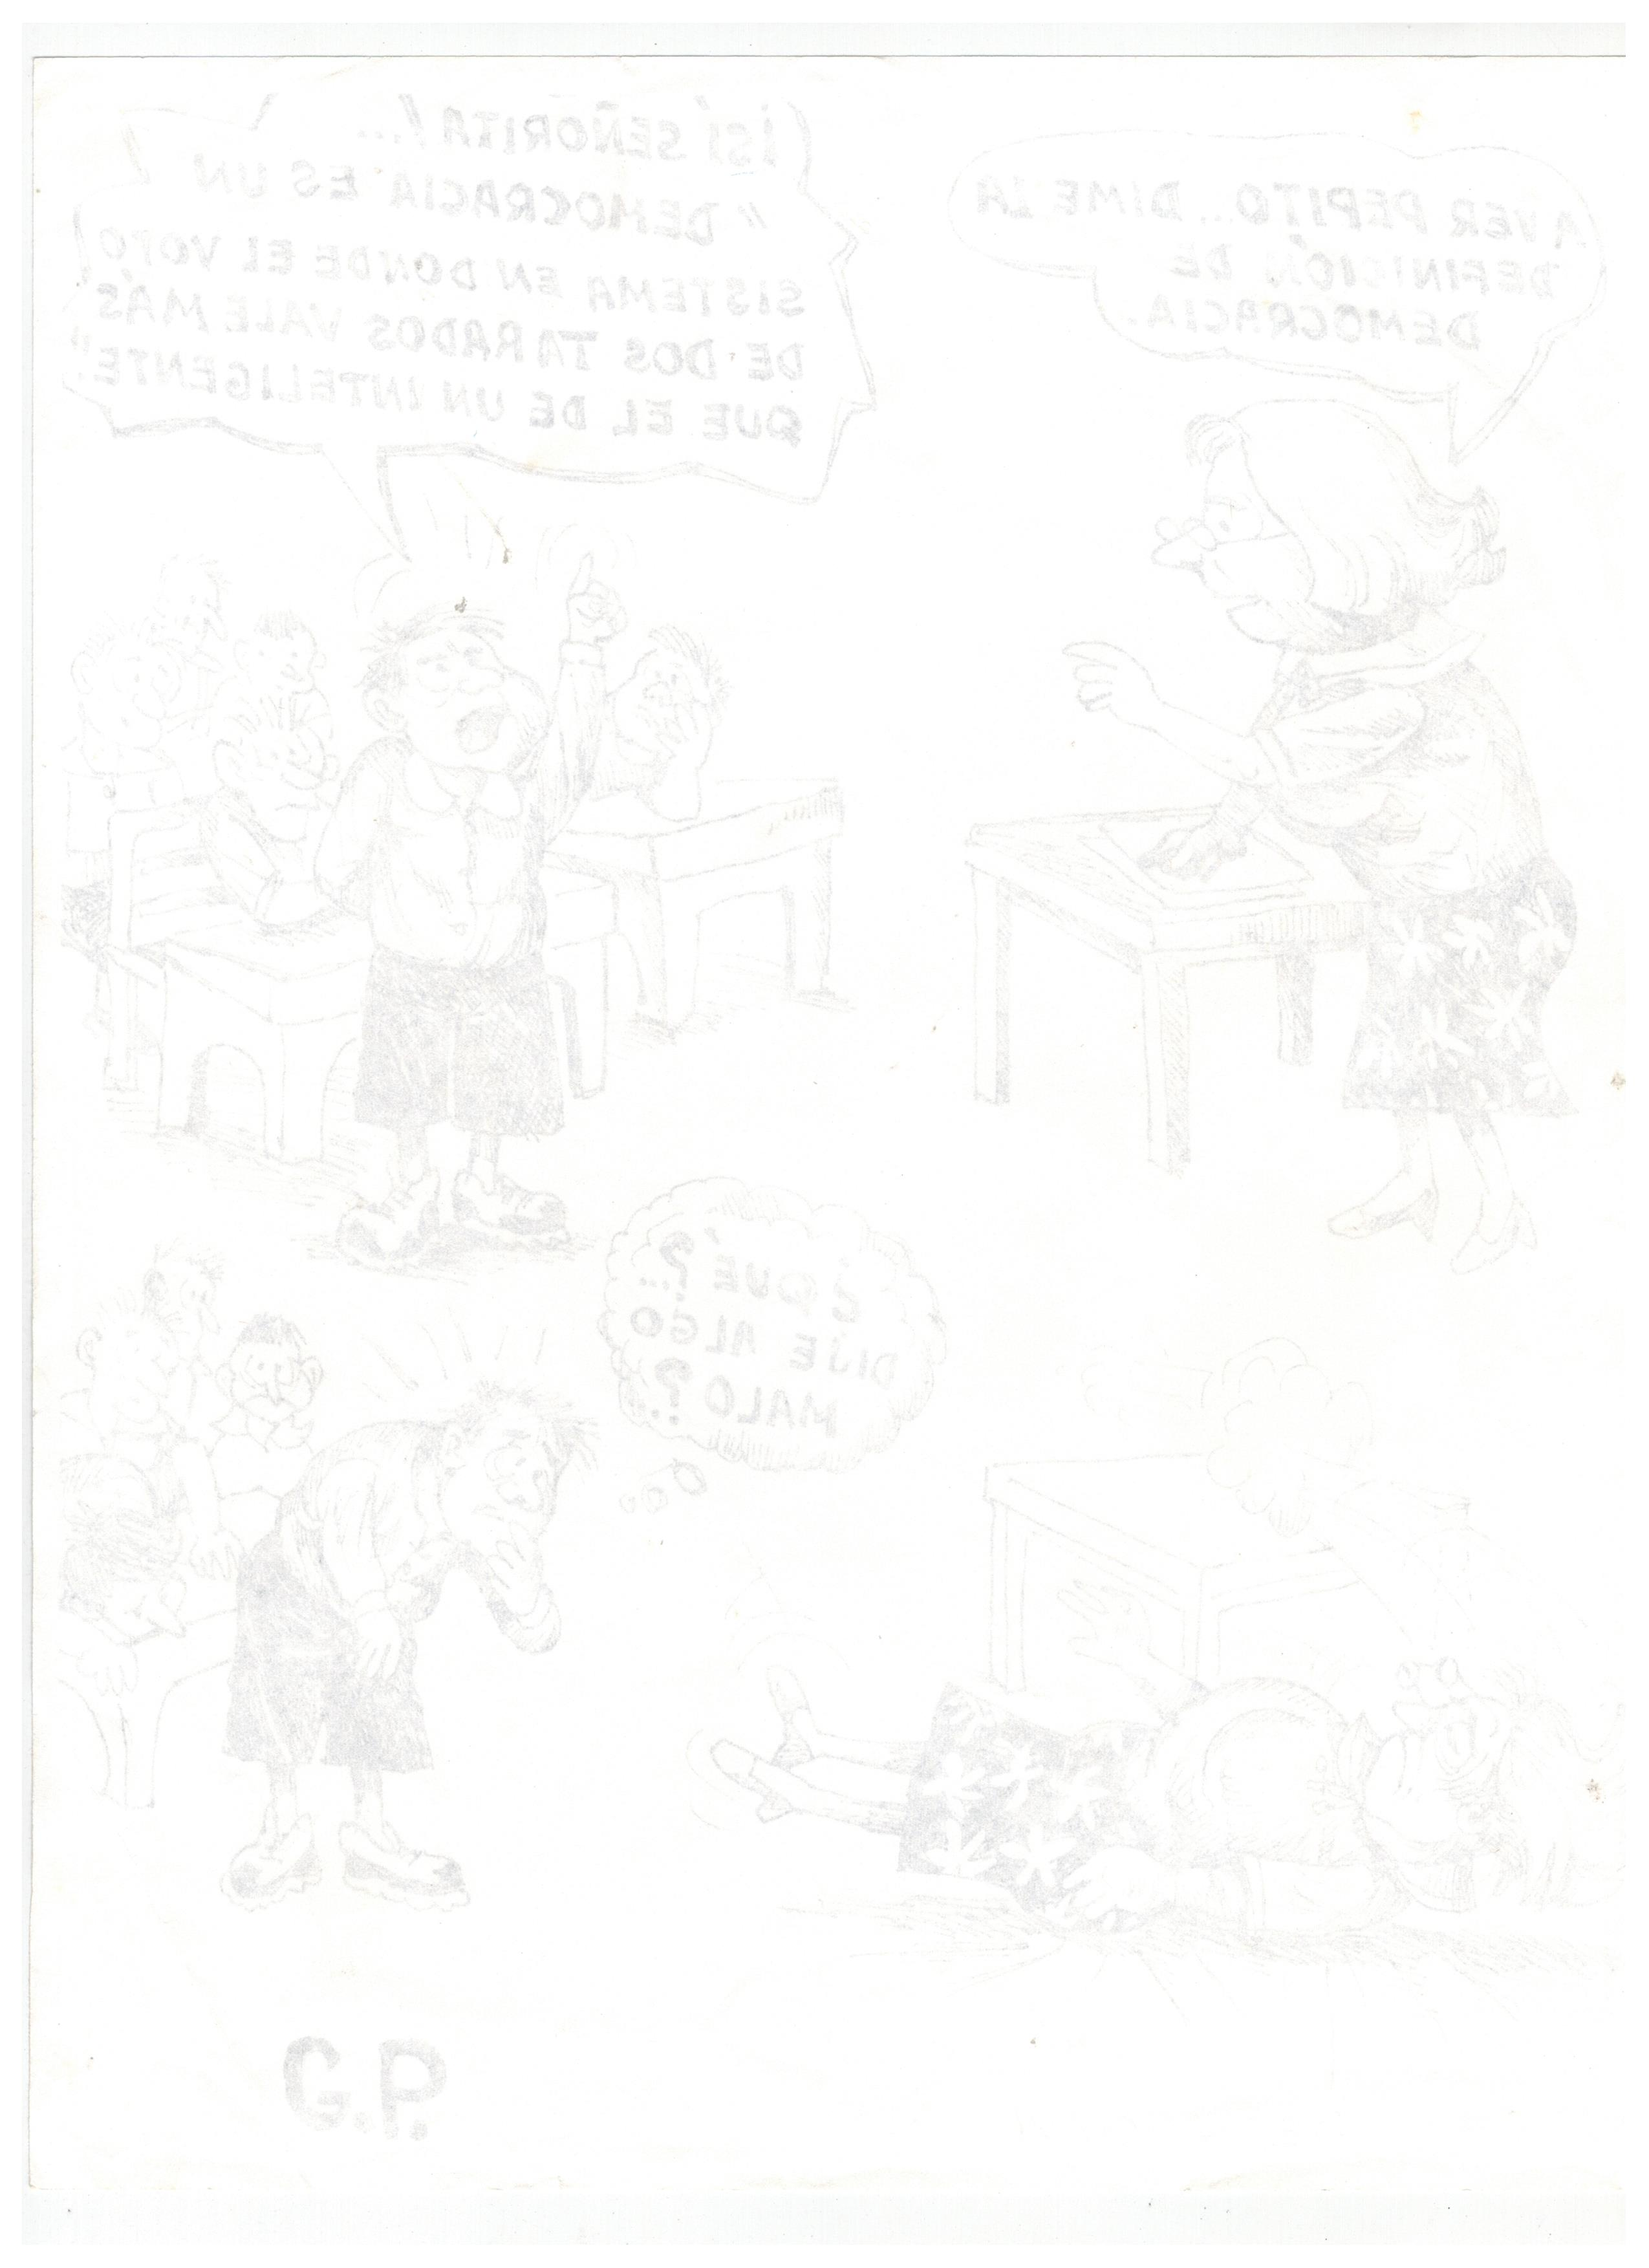 A VER PEPITO... DIME LA
DEFINICIÓN DE
DEMOCRACIA.
¡SÍ SEÑORITA!...
"DEMOCRACIA ES UN
SISTEMA EN DONDE EL VOTO
DE DOS TARADOS VALE MÁS
QUE EL DE UN INTELIGENTE"
¿QUÉ?...
DIJE ALGO
MALO?..
G.P.